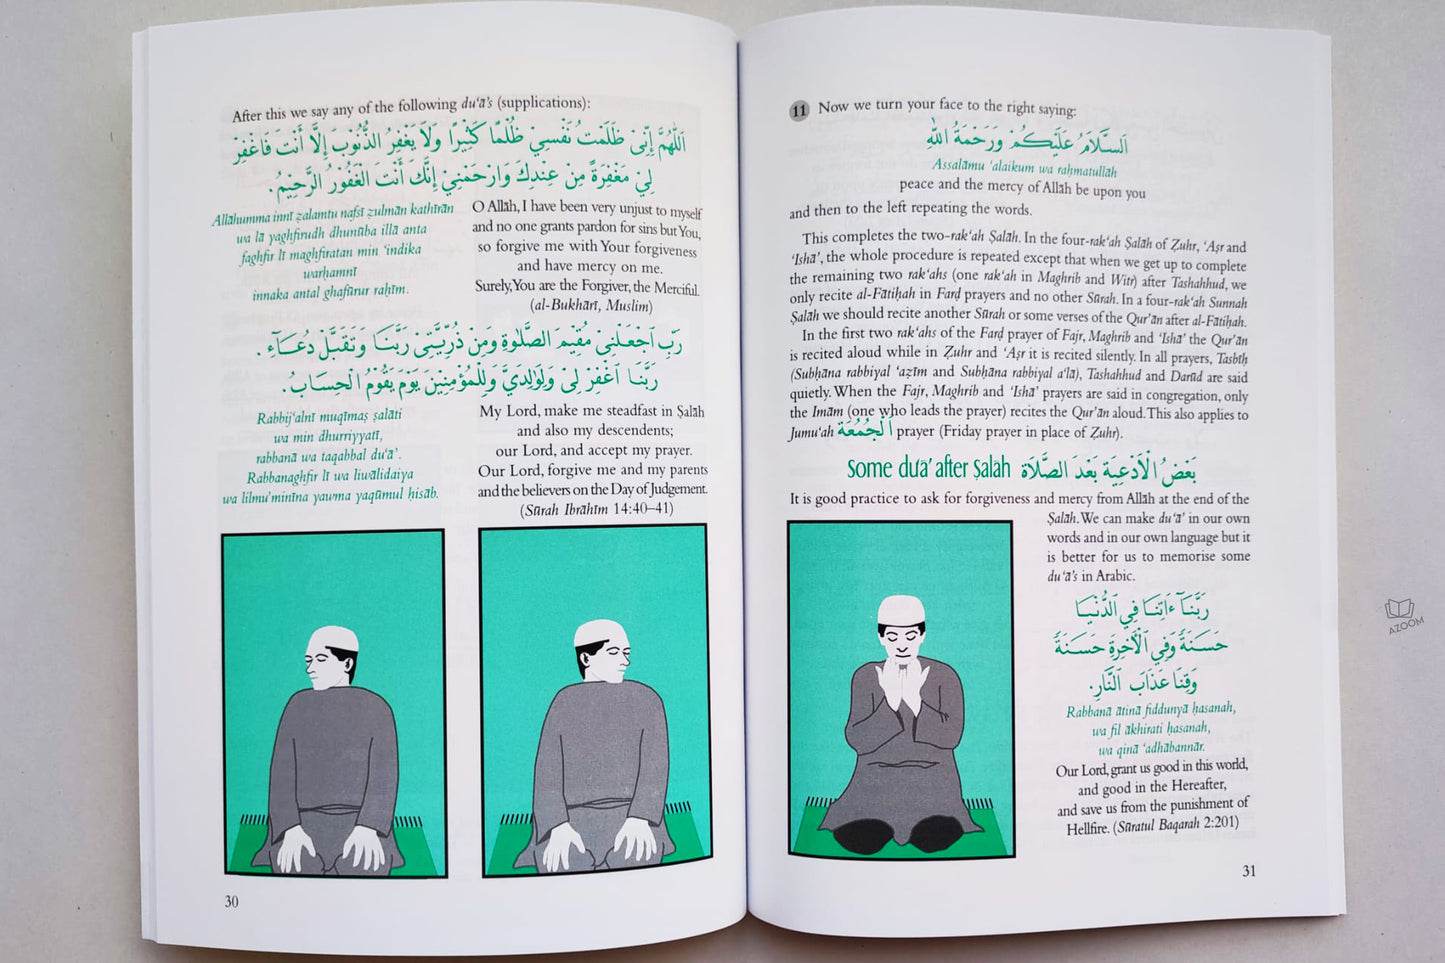 After this we say any of the following du‘ā’s (supplications):
اَللّٰهُمَّ إِنِّىْ ظَلَمْتُ نَفْسِيْ ظُلْمًا كَثِيْرًا وَلَا يَغْفِرُ الذُّنُوْبَ إِلَّا أَنْتَ فَاغْفِرْ
لِيْ مَغْفِرَةً مِنْ عِنْدِكَ وَارْحَمْنِيْ إِنَّكَ أَنْتَ الْغَفُوْرُ الرَّحِيْمُ.
Allāhumma innī ẓalamtu nafsī ẓulmān kathīrān
wa lā yaghfirudh dhunūba illā anta
faghfir lī maghfiratan min ‘indika
warḥamnī
innaka antal ghafūrur raḥīm.
O Allāh, I have been very unjust to myself
and no one grants pardon for sins but You,
so forgive me with Your forgiveness
and have mercy on me.
Surely, You are the Forgiver, the Merciful.
(al-Bukhārī, Muslim)
رَبِّ اجْعَلْنِىْ مُقِيْمَ الصَّلٰوةِ وَمِنْ ذُرِّيَّتِىْ رَبَّنَا وَتَقَبَّلْ دُعَآءِ .
رَبَّنَا اغْفِرْ لِىْ وَلِوَالِدَيَّ وَلِلْمُؤْمِنِيْنَ يَوْمَ يَقُوْمُ الْحِسَابُ.
Rabbij‘alnī muqīmaṣ ṣalāti
wa min dhurriyyatī,
rabbanā wa taqabbal du‘ā’.
Rabbanaghfir lī wa liwālidaiya
wa lilmu’minīna yawma yaqūmul ḥisāb.
My Lord, make me steadfast in Ṣalāh
and also my descendents;
our Lord, and accept my prayer.
Our Lord, forgive me and my parents
and the believers on the Day of Judgement.
(Sūrah Ibrāhīm 14:40–41)
30
11 Now we turn your face to the right saying:
اَلسَّلَامُ عَلَيْكُمْ وَرَحْمَةُ اللّٰهِ
Assalāmu ‘alaikum wa raḥmatullāh
peace and the mercy of Allāh be upon you
and then to the left repeating the words.
This completes the two-rak‘ah Ṣalāh. In the four-rak‘ah Ṣalāh of Ẓuhr, ‘Aṣr and
‘Ishā’, the whole procedure is repeated except that when we get up to complete
the remaining two rak‘ahs (one rak‘ah in Maghrib and Witr) after Tashahhud, we
only recite al-Fātiḥah in Farḍ prayers and no other Sūrah. In a four-rak‘ah Sunnah
Ṣalāh we should recite another Sūrah or some verses of the Qur’ān after al-Fātiḥah.
In the first two rak‘ahs of the Farḍ prayer of Fajr, Maghrib and ‘Ishā’ the Qur’ān
is recited aloud while in Ẓuhr and ‘Aṣr it is recited silently. In all prayers, Tasbīh
(Subḥāna rabbiyal ‘aẓīm and Subḥāna rabbiyal a‘lā), Tashahhud and Darūd are said
quietly. When the Fajr, Maghrib and ‘Ishā’ prayers are said in congregation, only
the Imām (one who leads the prayer) recites the Qur’ān aloud. This also applies to
Jumu‘ah اَلْجُمُعَة prayer (Friday prayer in place of Ẓuhr).
Some du‘ā’ after Ṣalāh بَعْضُ الْأَدْعِيَةِ بَعْدَ الصَّلَاةِ
It is good practice to ask for forgiveness and mercy from Allāh at the end of the
Ṣalāh. We can make du‘ā’ in our own
words and in our own language but it
is better for us to memorise some
du‘ā’s in Arabic.
رَبَّنَآ ءَاتِنَا فِي الدُّنْيَا
حَسَنَةً وَفِي الْآخِرَةِ حَسَنَةً
وَقِنَا عَذَابَ النَّارِ.
Rabbanā ātinā fiddunyā ḥasanah,
wa fil ākhirati ḥasanah,
wa qinā ‘adhābannār.
Our Lord, grant us good in this world,
and good in the Hereafter,
and save us from the punishment of
Hellfire. (Sūratul Baqarah 2:201)
31
AZOOM